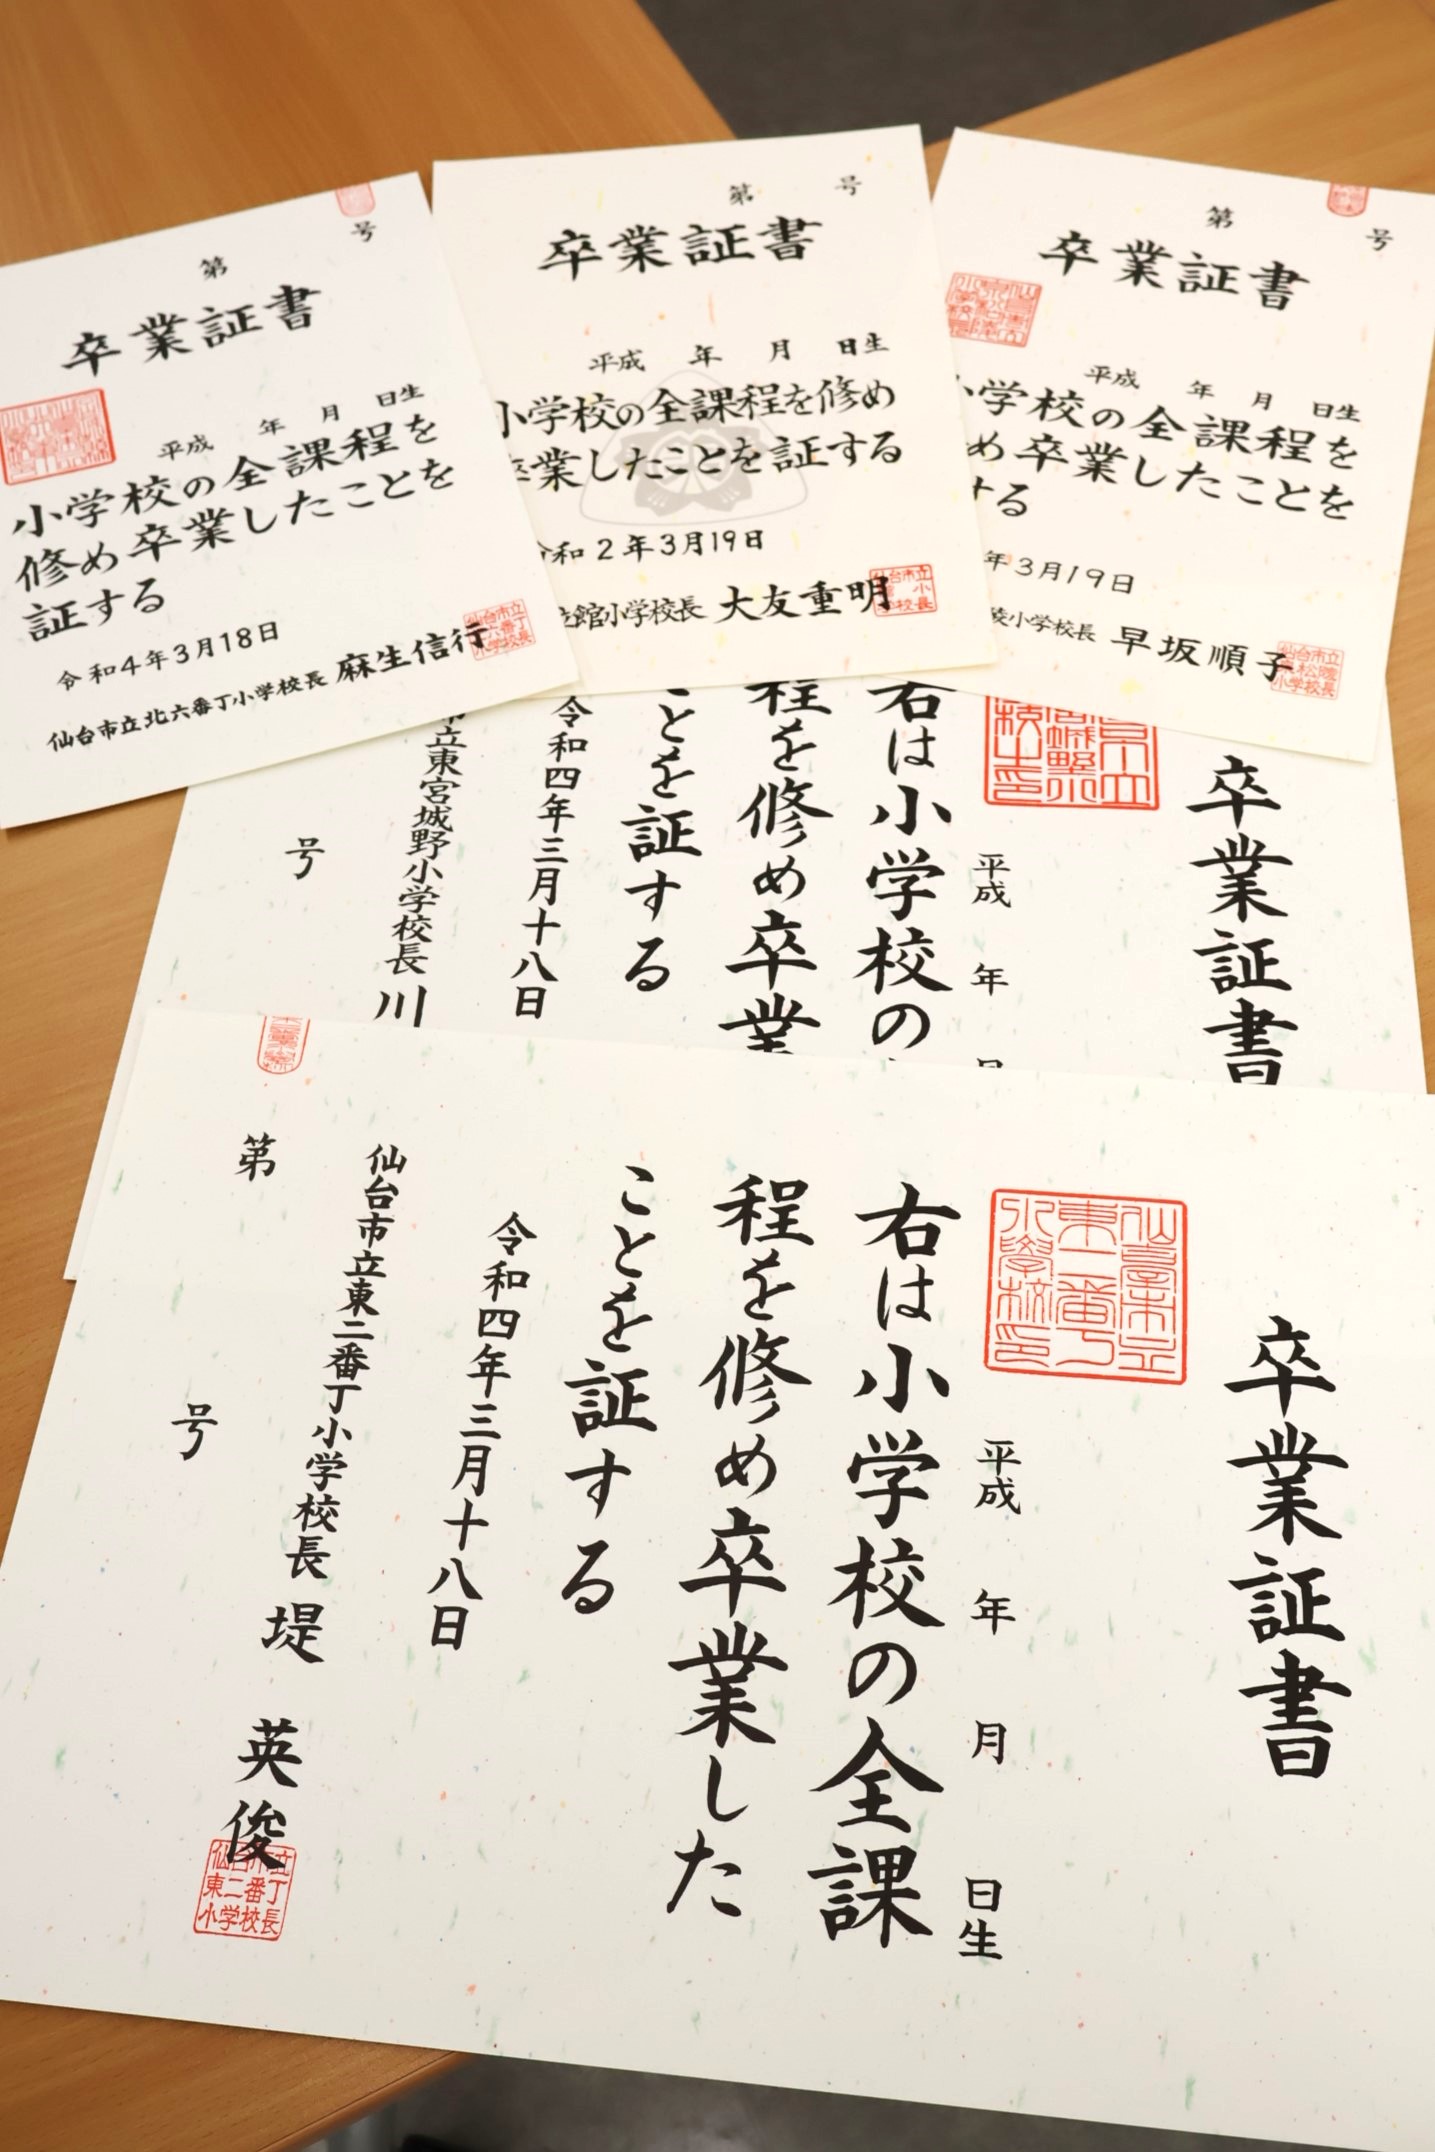 第 号
卒業証書
平成 年 月 日生
小学校の全課程を
修め卒業したことを
証する
令和4年3月18日
仙台市立北六番丁小学校長 麻生信行
第 号
卒業証書
平成 年 月 日生
小学校の全課程を修め
卒業したことを証する
令和2年3月19日
館小学校長 大友重明
第 号
卒業証書
平成 年 月 日生
小学校の全課程を
め卒業したことを
する
年3月19日
陵小学校長 早坂順子
卒業証書
平成 年
右は小学校の
程を修め卒業
とを証する
令和四年三月十八日
市立東宮城野小学校長 川
号
卒業証書
平成 年 月 日生
右は小学校の全課
程を修め卒業した
ことを証する
令和四年三月十八日
仙台市立東二番丁小学校長 堤 英俊
仙台市立
東二番丁
小学校長
第 号